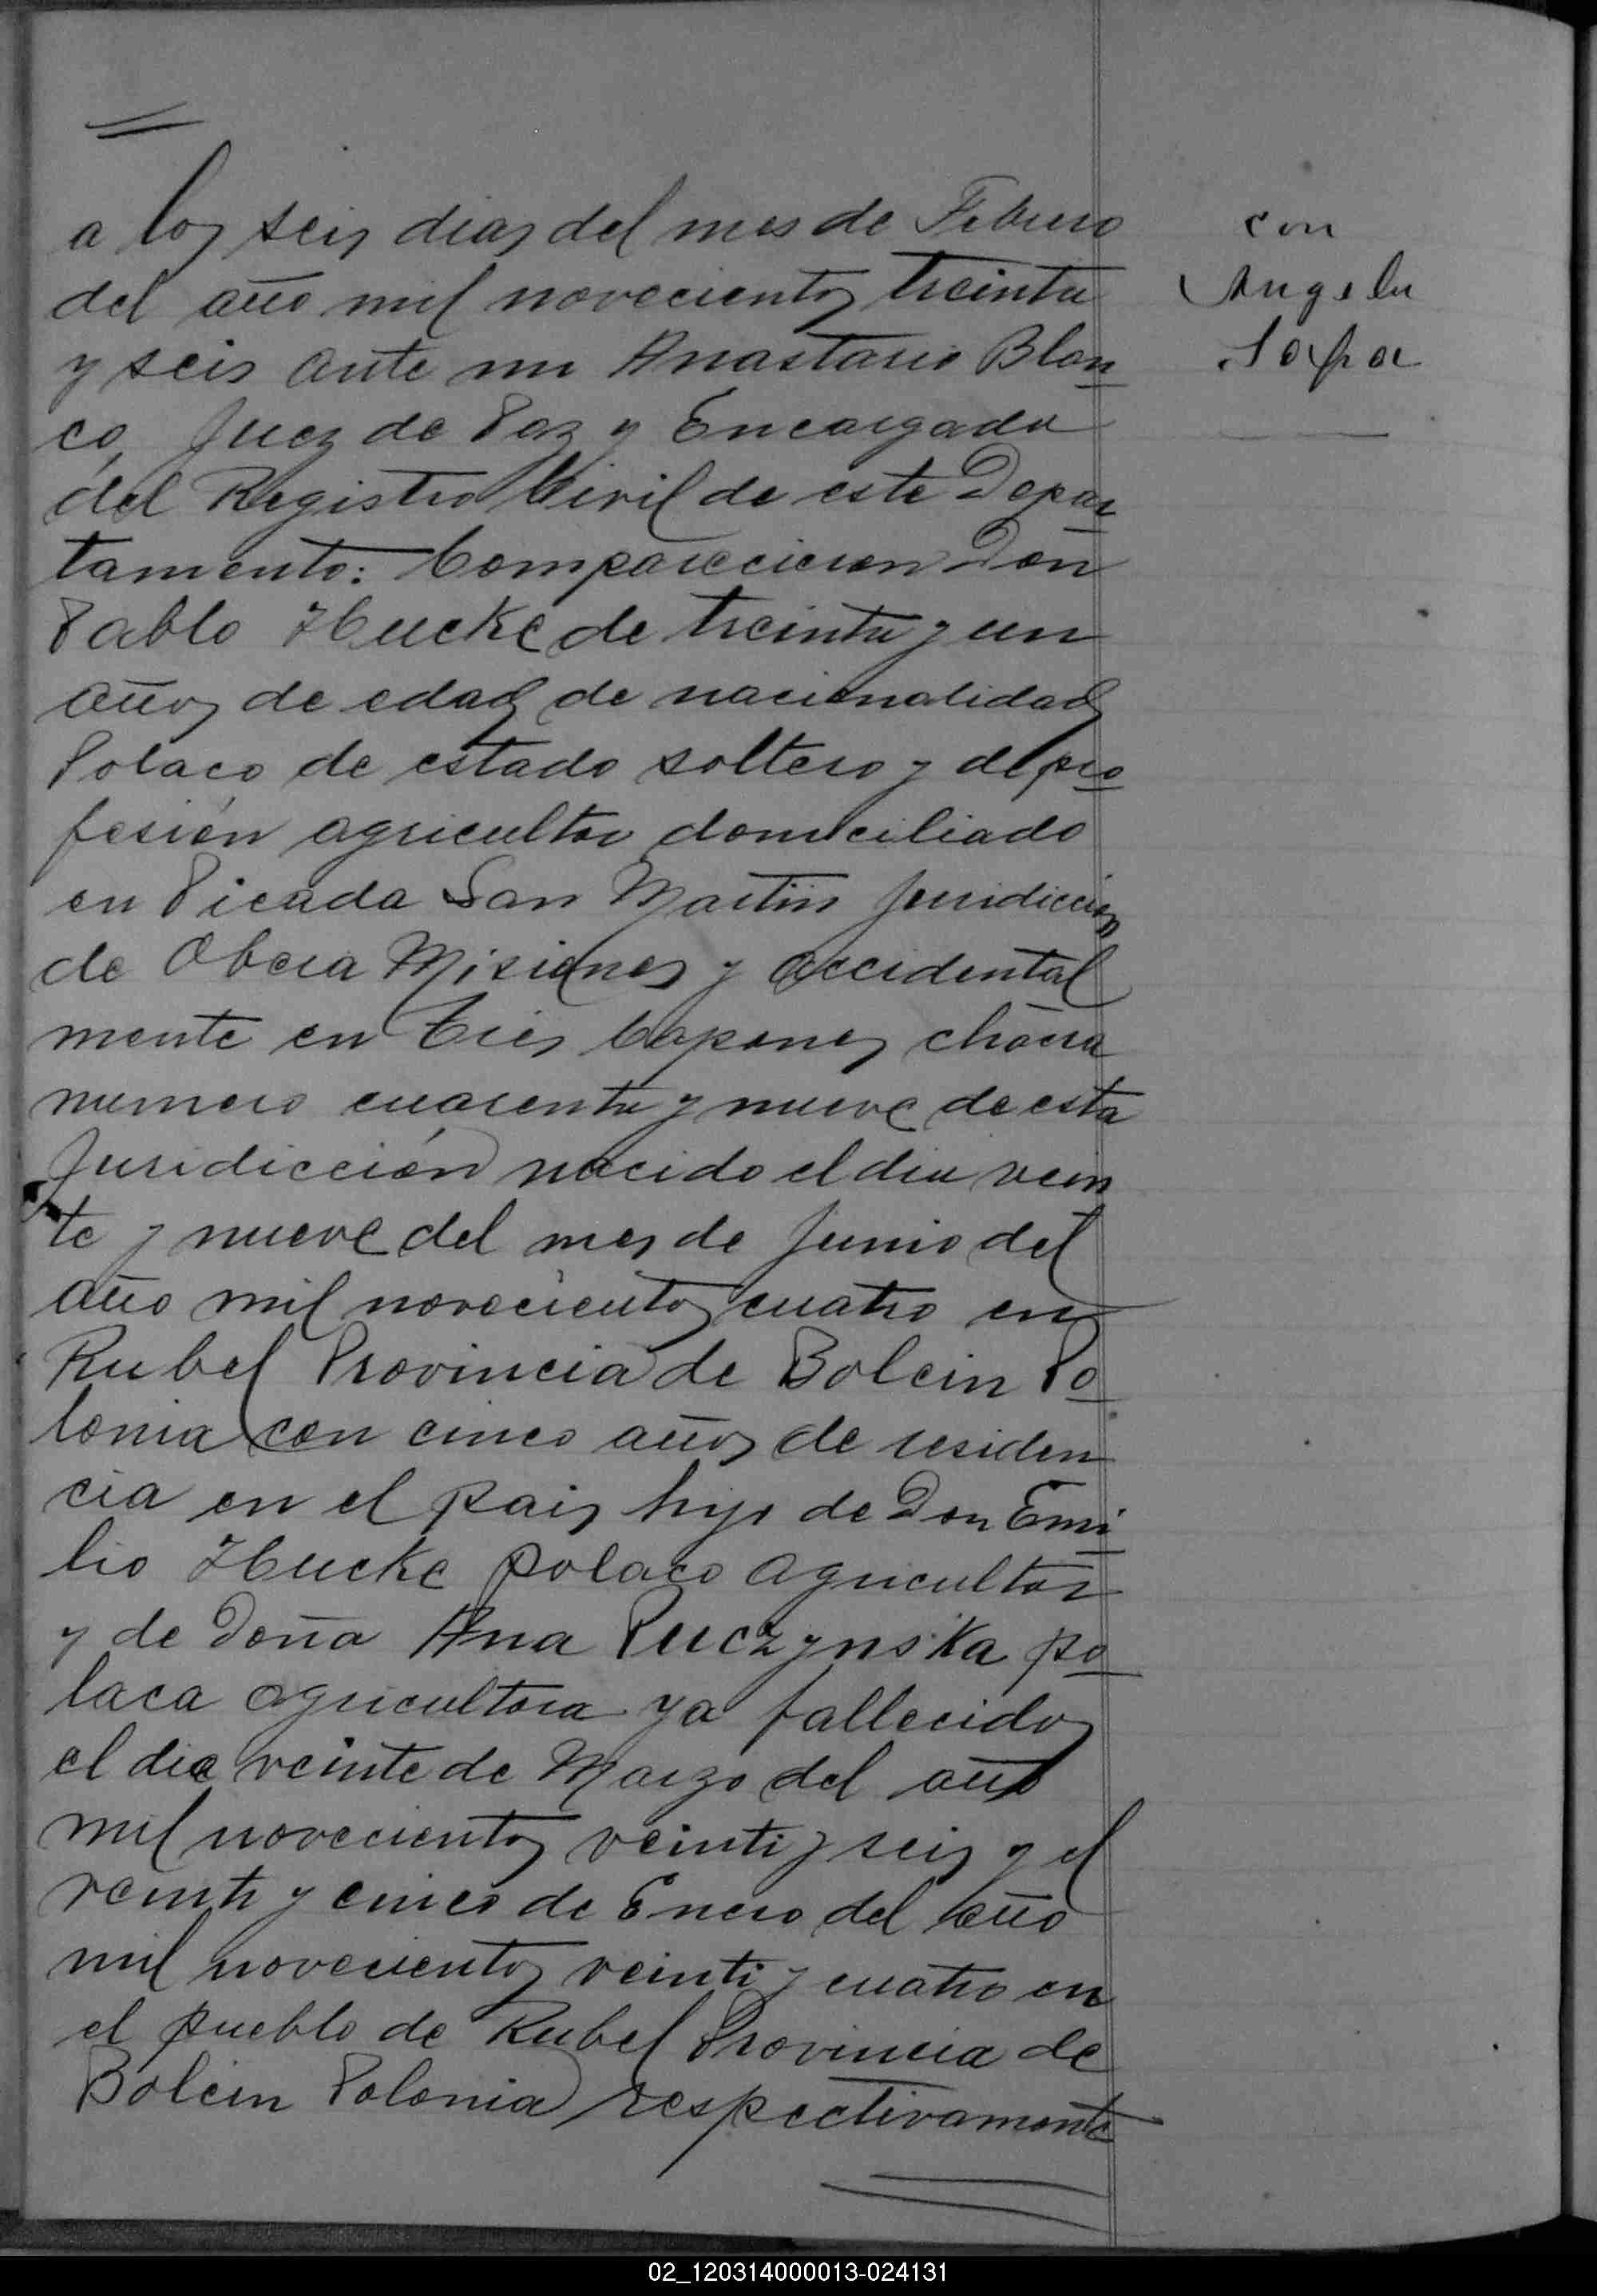 a los seis dias del mes de Febrero
del año mil novecientos treinta
y seis ante mi Anastasio Blan
co, Juez de Paz y Encargado
del Registro Civil de este Depar
tamento: Comparecieron Don
Pablo Hucke de treinta y un
años de edad de nacionalidad
Polaco de estado soltero y de pro
fesión agricultor domiciliado
en Picada San Martin Juridiccion
de Obera Misiones y accidental
mente en Tres Capones chacra
numero cuarenta y nueve de esta
Juridicción nacido el dia vein
te y nueve del mes de Junio del
año mil novecientos cuatro en
Rubel Provincia de Bolein Po
lonia con cinco años de residen
cia en el pais hijo de Don Emi
lio Hucke polaco agricultor
y de Doña Ana Puczynska po
laca agricultora ya fallecidos
el dia veinte de Marzo del año
mil novecientos veinti y seis y el
veinti y cinco de Enero del año
mil novecientos veinti y cuatro en
el pueblo de Rubel Provincia de
Bolein Polonia respectivamente
con
Angela
Sapa
02_120314000013-024131